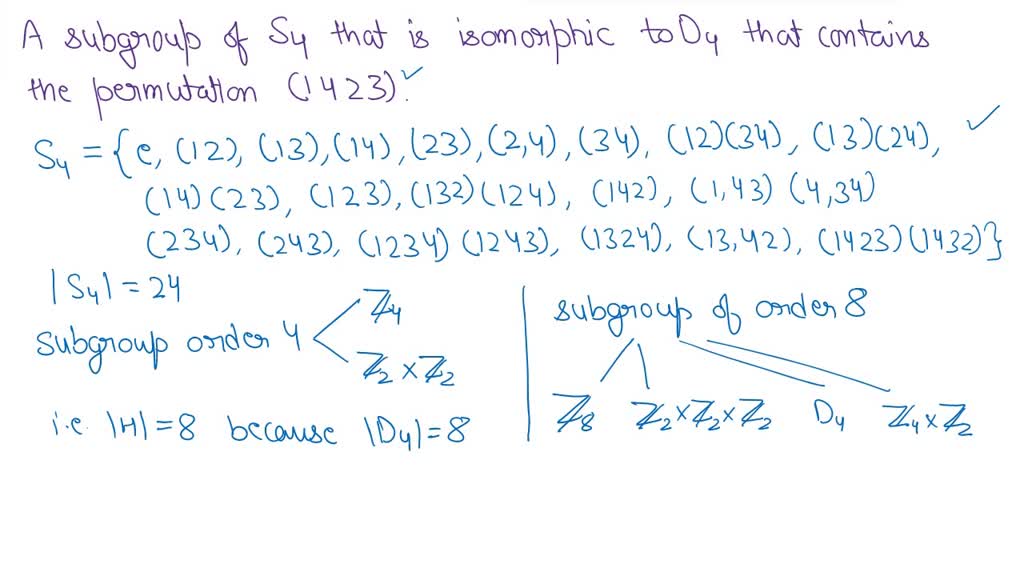 A subgroup of S4 that is isomorphic to D4 that contains
the permutation (1423). ✓
S4 = {e, (12), (13), (14), (23), (2,4), (34), (12)(34), (13)(24), ✓
(14)(23), (123), (132)(124), (142), (1,43) (4,34)
(234), (243), (1234)(1243), (1324), (13,42), (1423)(1432)}
|S4| = 24
subgroup order 4
ℤ4
ℤ2×ℤ2
i.e. |H|=8 because |D4|=8
subgroup of order 8
ℤ8 ℤ2×ℤ2×ℤ2 D4 ℤ4×ℤ2